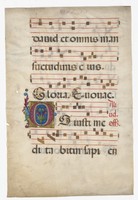 dauid et omnis man
suetudinis eius.
Gloria. Euouae.
Os iusti me
dita bitur sapi en